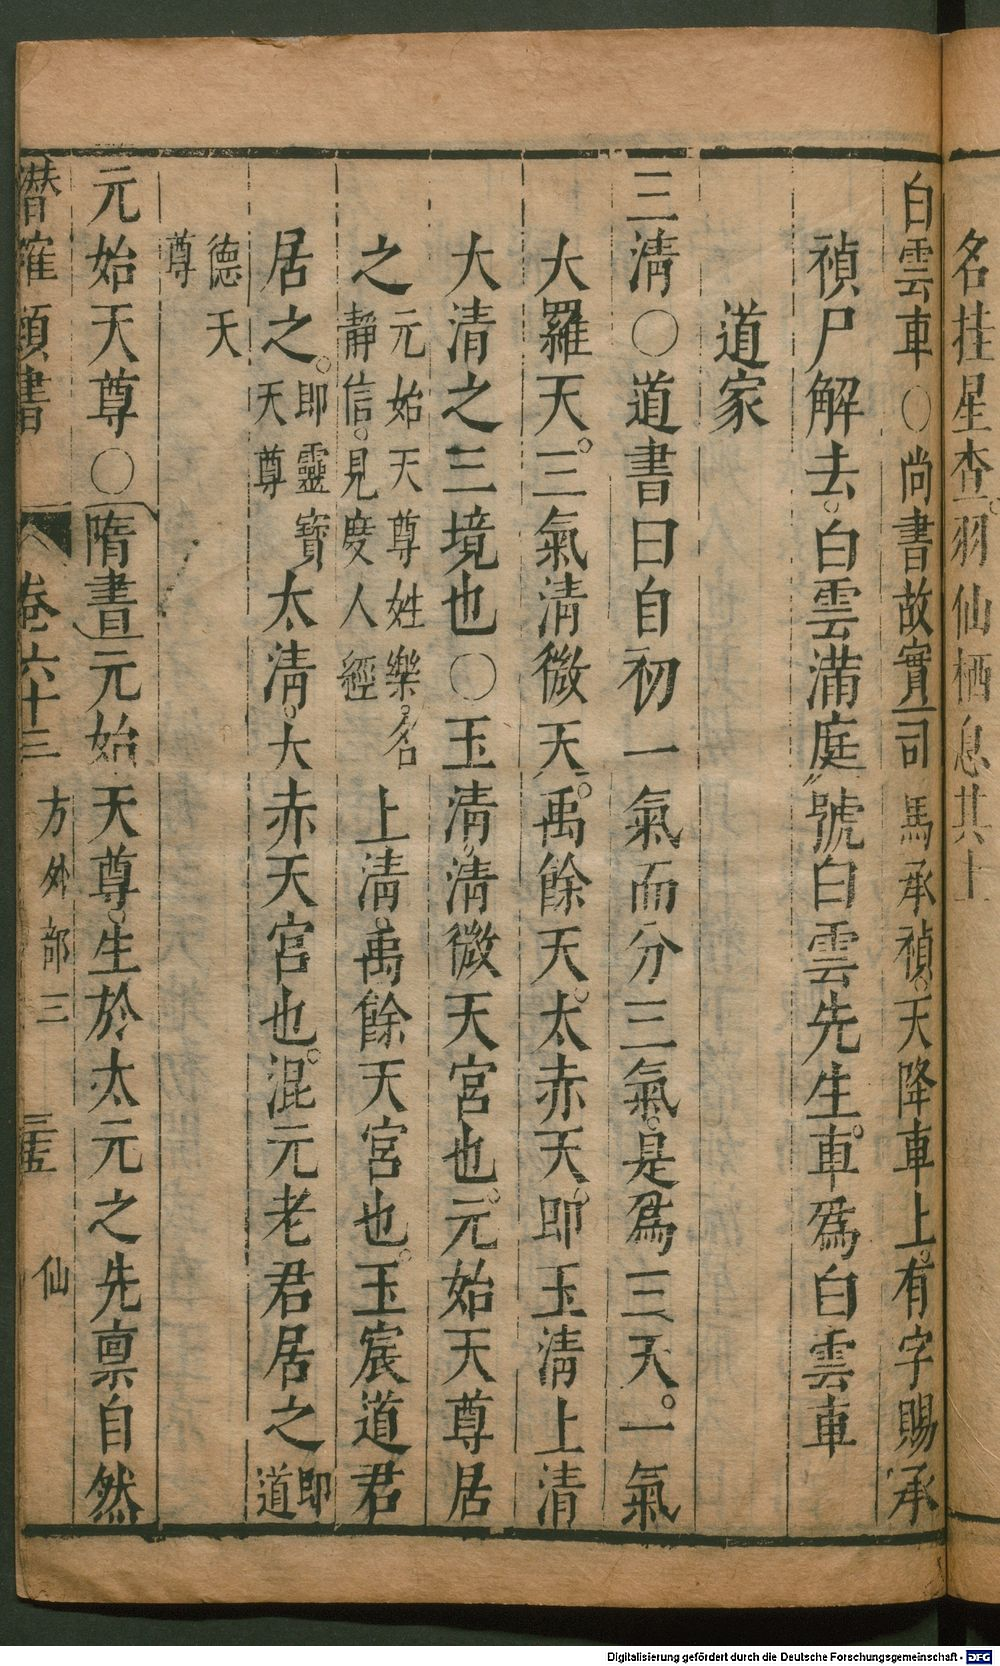 名挂星杢。羽仙栖息其上
白雲車〇尚書故實司馬承禎。天降車上。有字賜承
禎尸解去。白雲滿庭號白雲先生。車爲白雲車
道家
三清〇道書曰自初一氣而分三氣。是爲三天。一氣
大羅天。三氣清微天。禹餘天。太赤天。即玉清上清
大清之三境也〇玉清清微天宮也。元始天尊居
之元始天尊姓樂。名靜信。見度人經上清禹餘天宮也。玉宸道君
居之。即靈寶天尊太清。大赤天宮也。混元老君居之即道
德天尊
元始天尊〇隋書元始天尊。生於太元之先稟自然
潛確類書 卷六十三 方外部三 仙
Digitalisierung gefördert durch die Deutsche Forschungsgemeinschaft - DFG